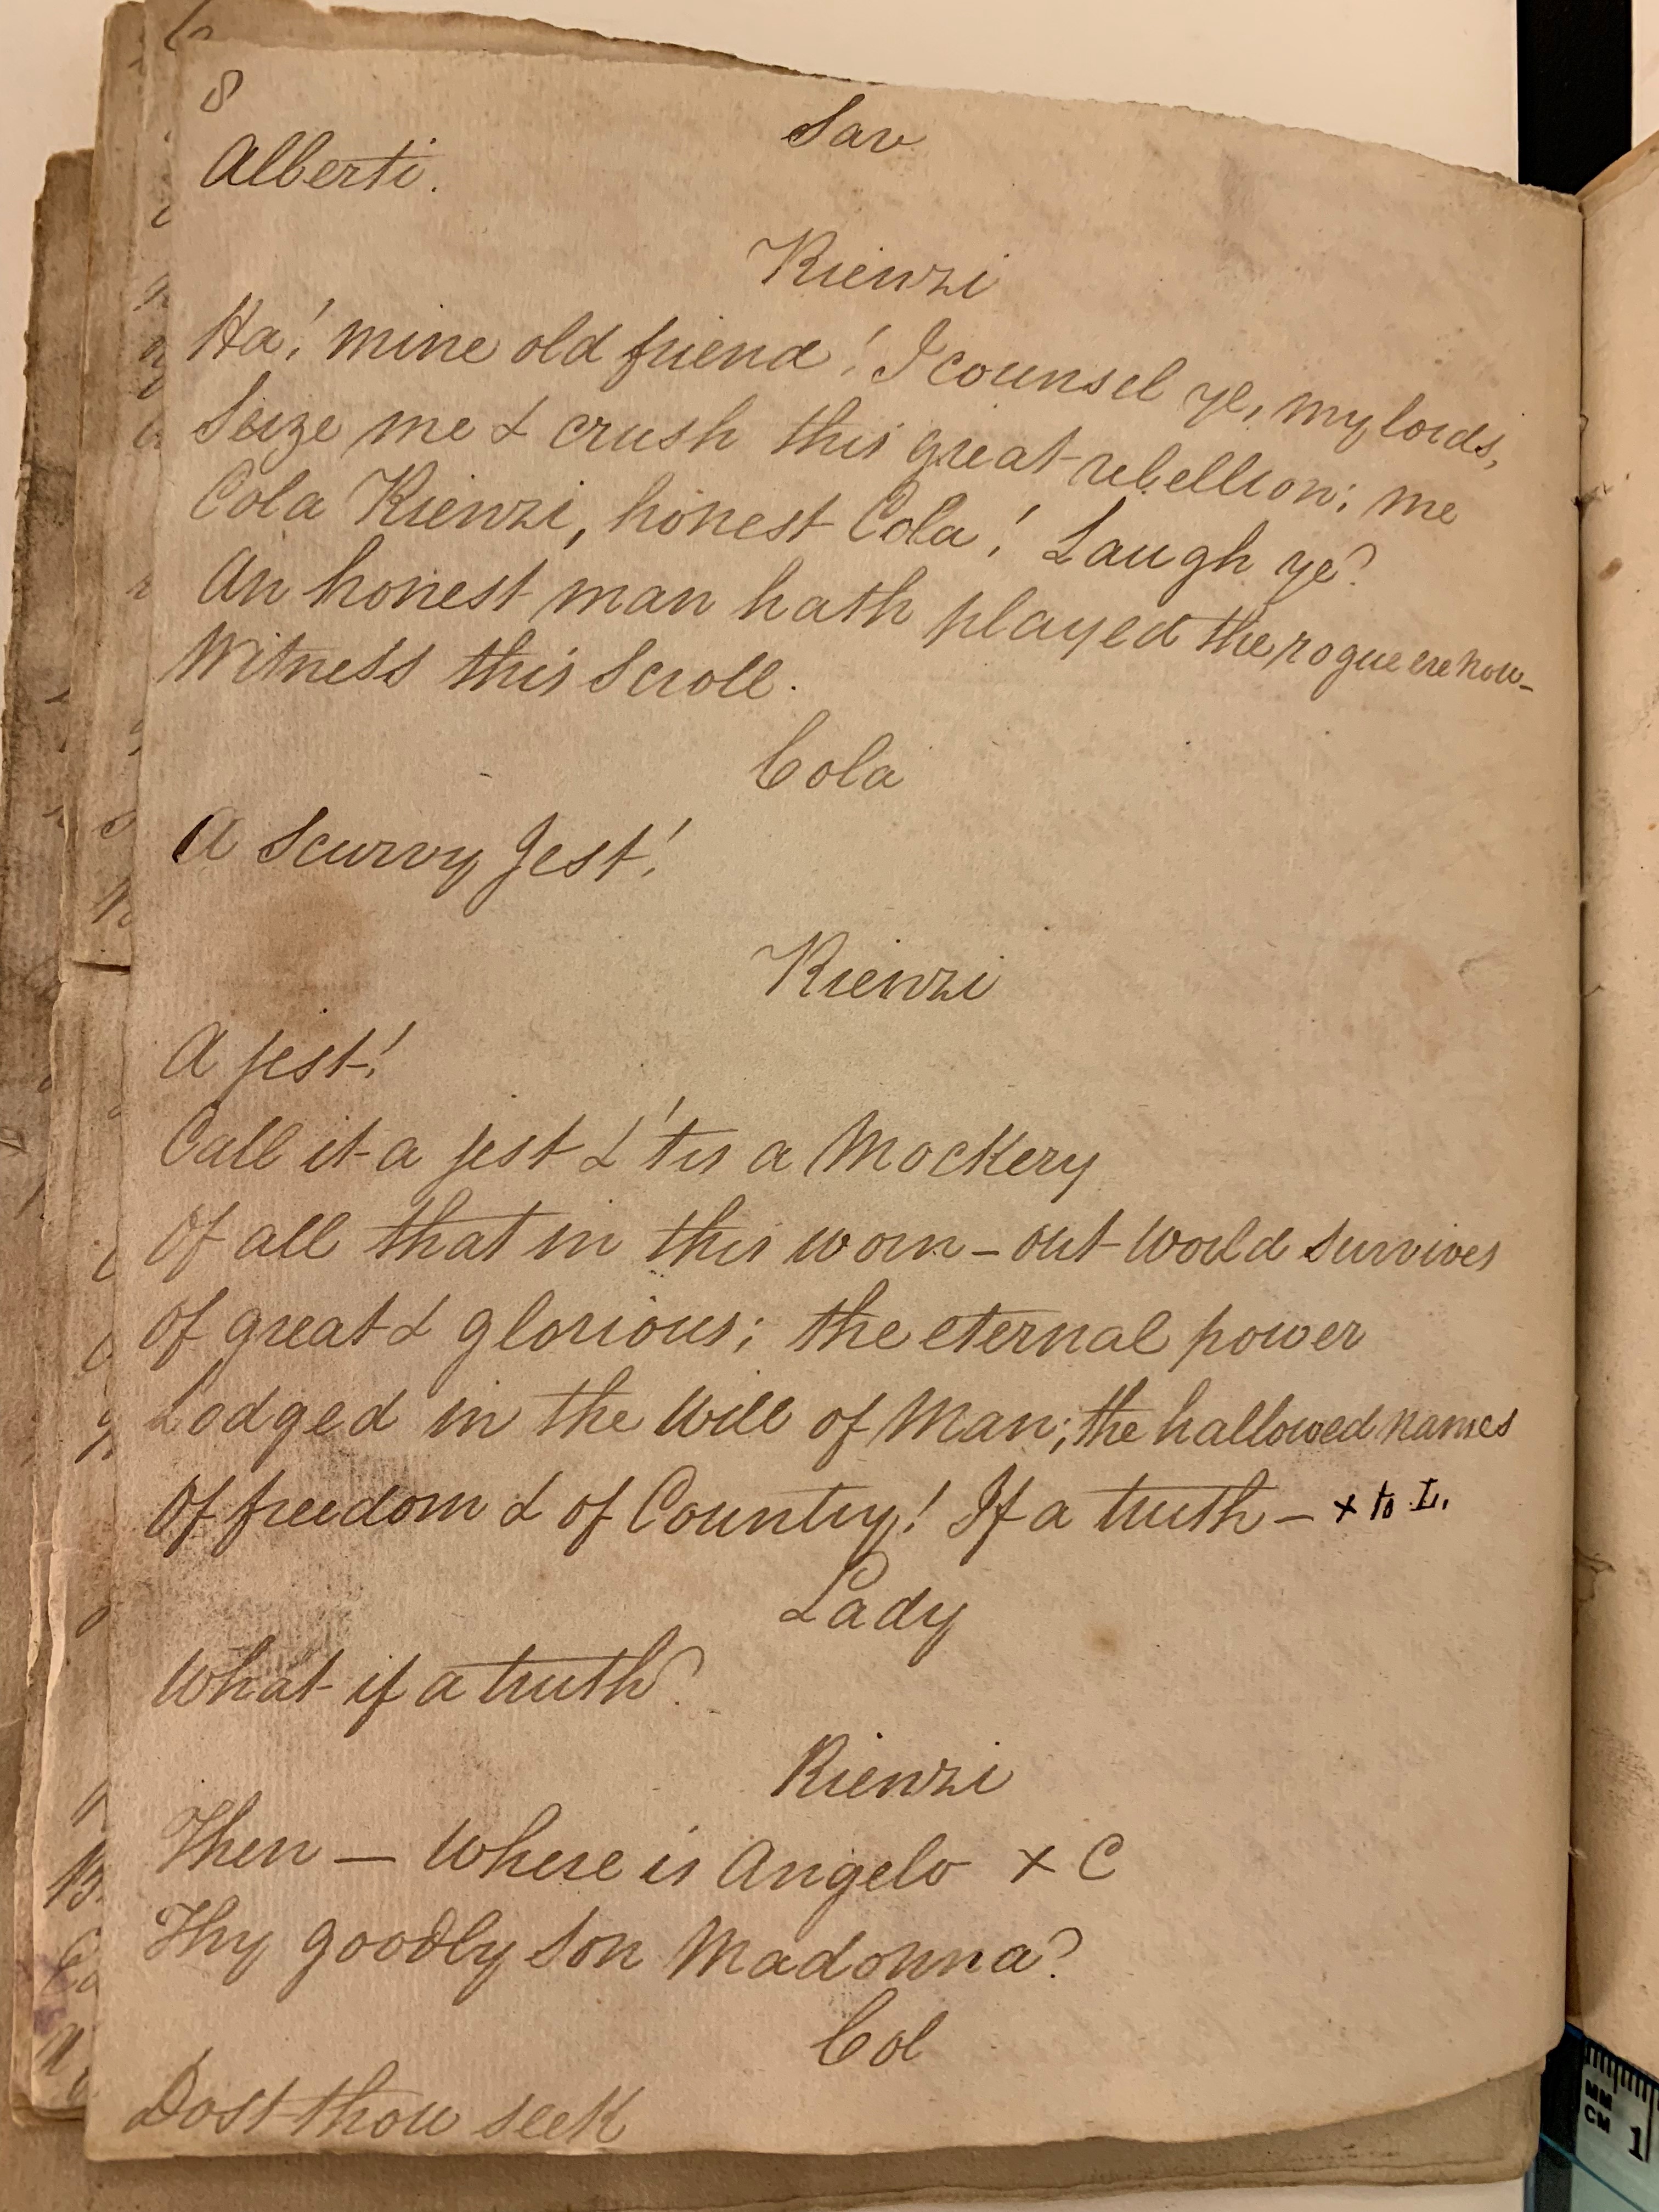 8
Sav
Alberti.
Rienzi
Ha! mine old friend! I counsel ye, my lords,
Seize me & crush this great rebellion; me
Cola Rienzi, honest Cola! Laugh ye?
An honest man hath played the rogue ere now—
Witness this Scroll.
Cola
A Scurvy Jest!
Rienzi
A jest!
Call it a jest & 'tis a Mockery
Of all that in this worn-out World survives
Of great & glorious; the eternal power
Lodged in the Will of Man; the hallowed names
Of freedom & of Country! If a truth — x to L.
Lady
What if a truth?
Rienzi
Then — Where is Angelo x C
Thy goodly Son Madonna?
Col
Dost thou seek
MM
CM 1